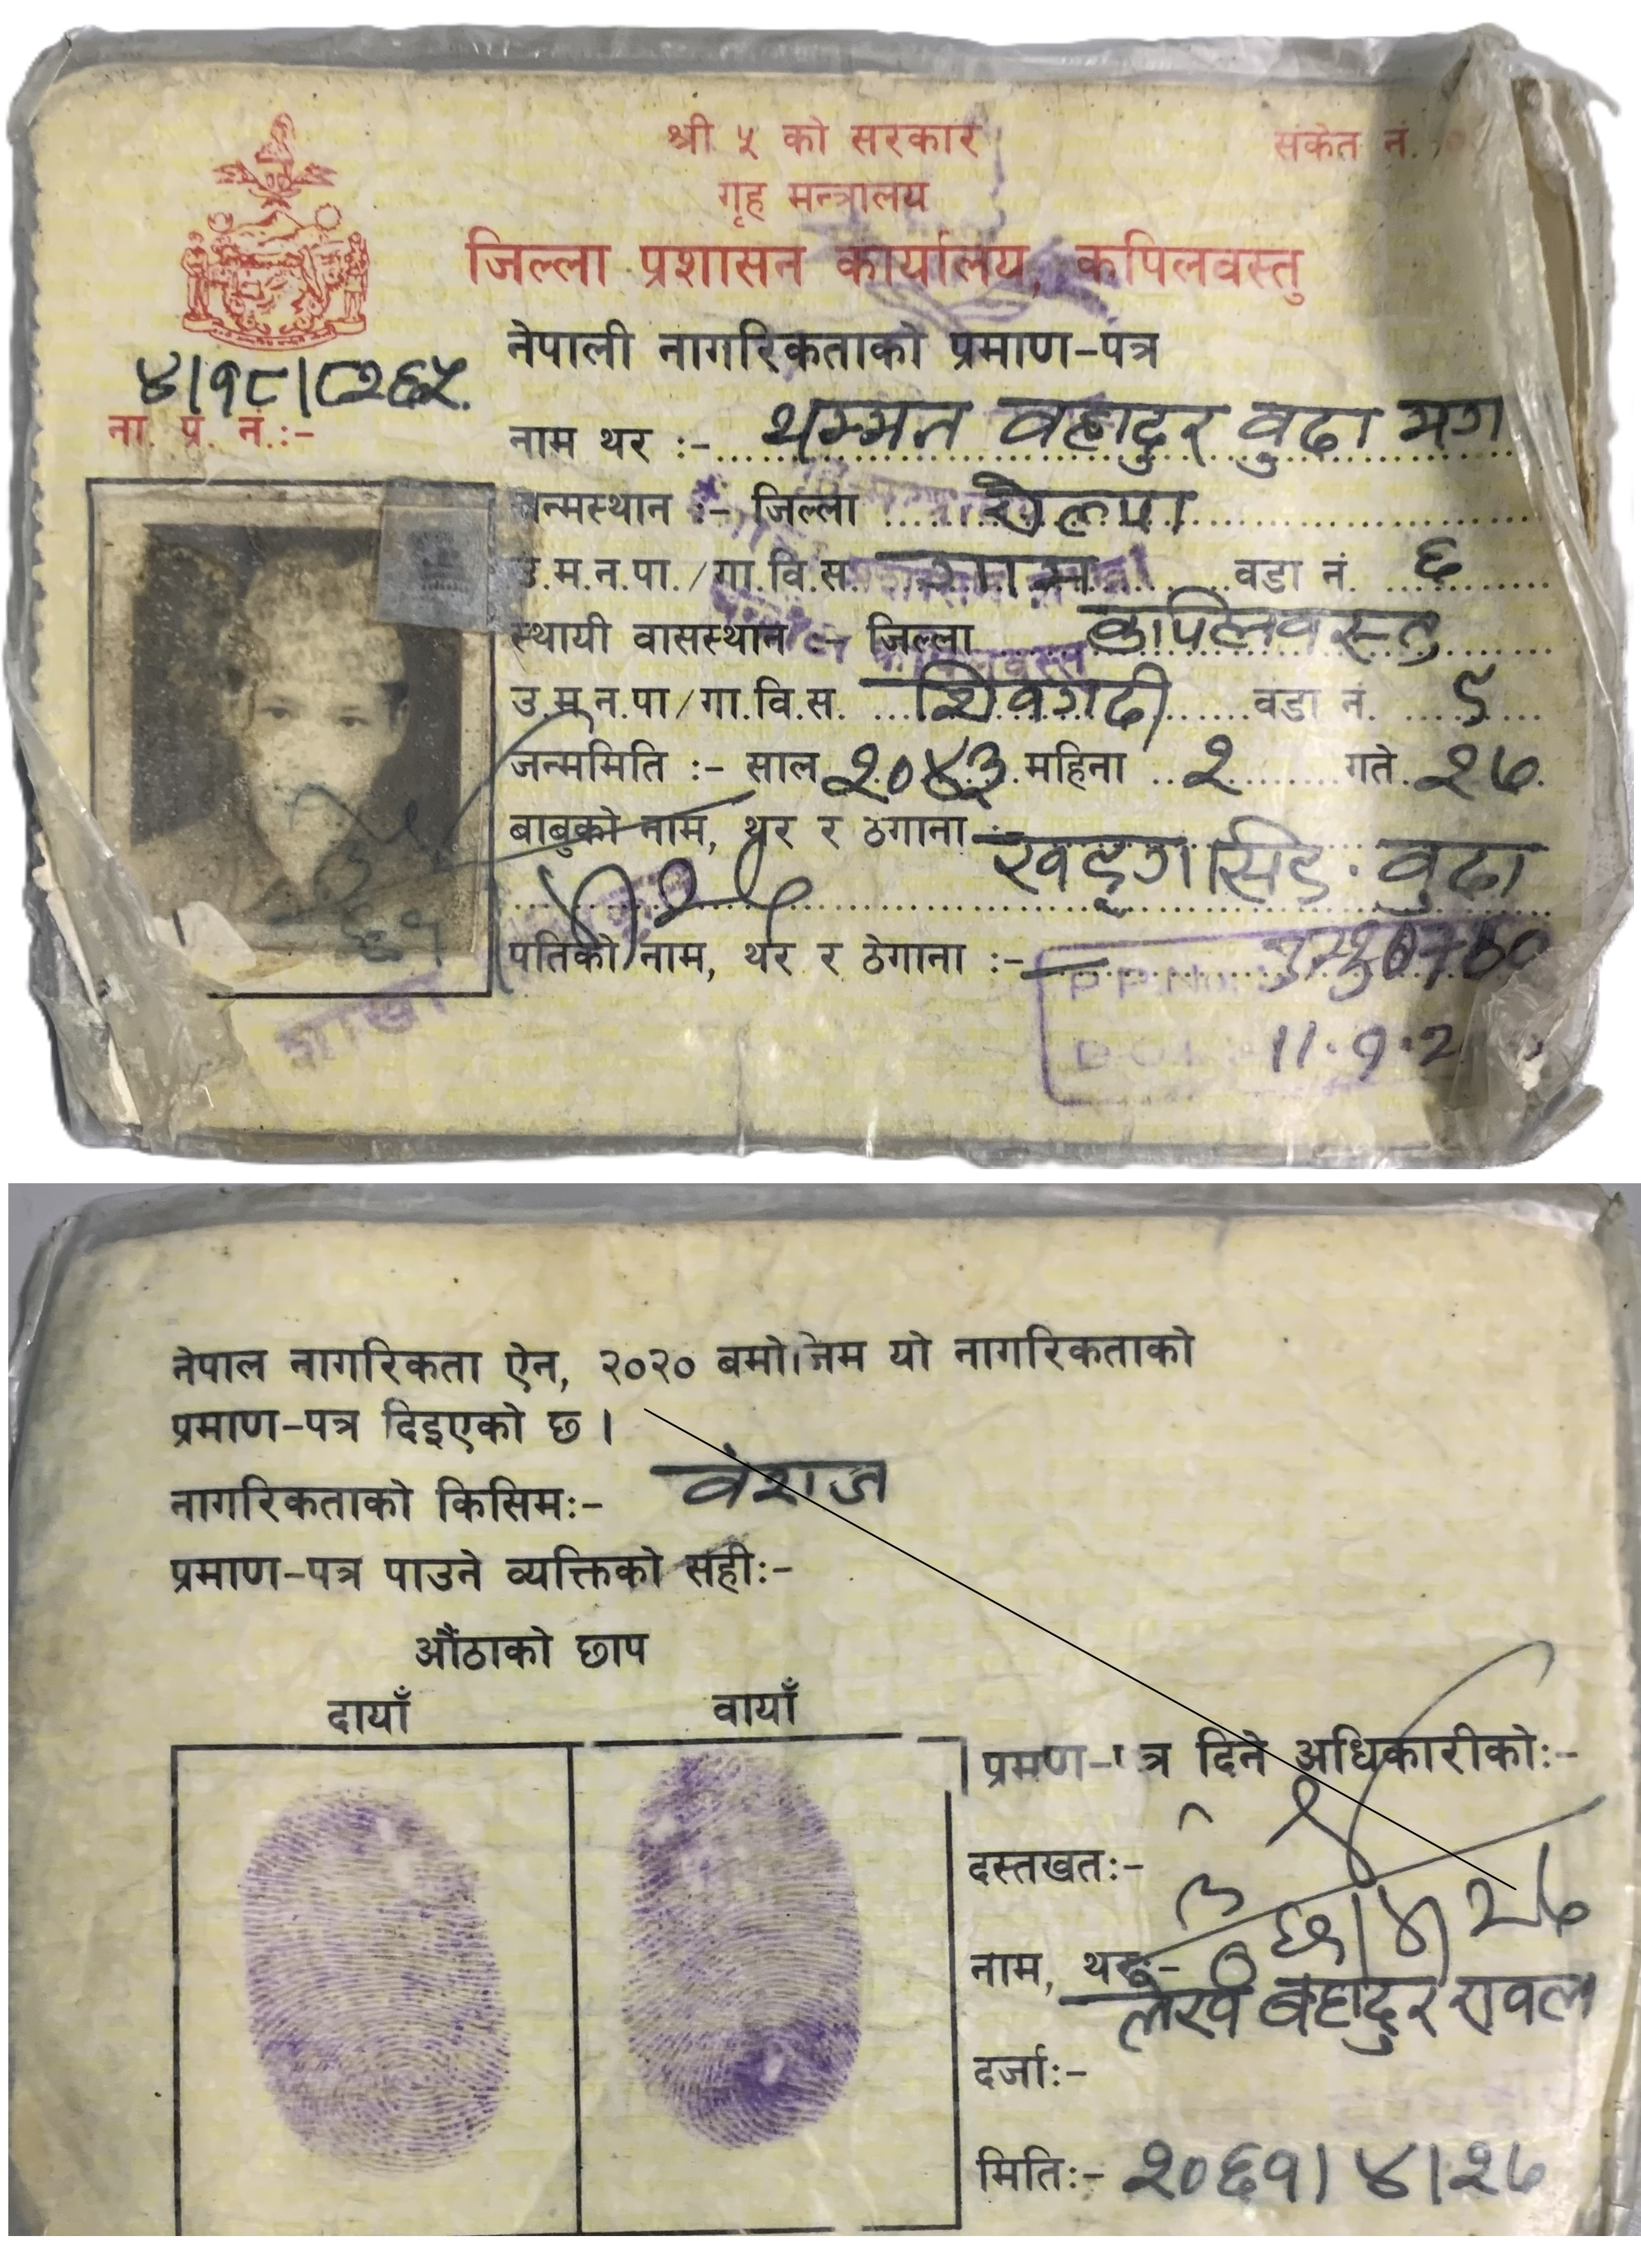 श्री ५ को सरकार
संकेत नं.
गृह मन्त्रालय
जिल्ला प्रशासन कार्यालय, कपिलवस्तु
नेपाली नागरिकताको प्रमाण-पत्र
४।१८।८२६५.
ना. प्र. नं.:-
नाम थर :- थम्मन वहादुर वुढा मग
जन्मस्थान :- जिल्ला रोल्पा
उ.म.न.पा./गा.वि.स. गाम वडा नं. ६
स्थायी वासस्थान :- जिल्ला कपिलवस्तु
उ.म.न.पा/गा.वि.स. शिवगढी वडा नं. ९
जन्ममिति :- साल २०४३ महिना २ गते २७
बाबुको नाम, थर र ठेगाना :- खड्ग सिं वुढा
पतिको नाम, थर र ठेगाना :-
P.P.No.
११
शाखा
D.O.I. 11.9.2
नेपाल नागरिकता ऐन, २०२० बमोजिम यो नागरिकताको
प्रमाण-पत्र दिइएको छ ।
नागरिकताको किसिम:- वंशज
प्रमाण-पत्र पाउने व्यक्तिको सही:-
औंठाको छाप
दायाँ वायाँ
प्रमण-पत्र दिने अधिकारीको:-
दस्तखत:-
६१।४।२७
नाम, थर:- लेख बहादुर रावल
दर्जा:-
मिति:- २०६१।४।२७